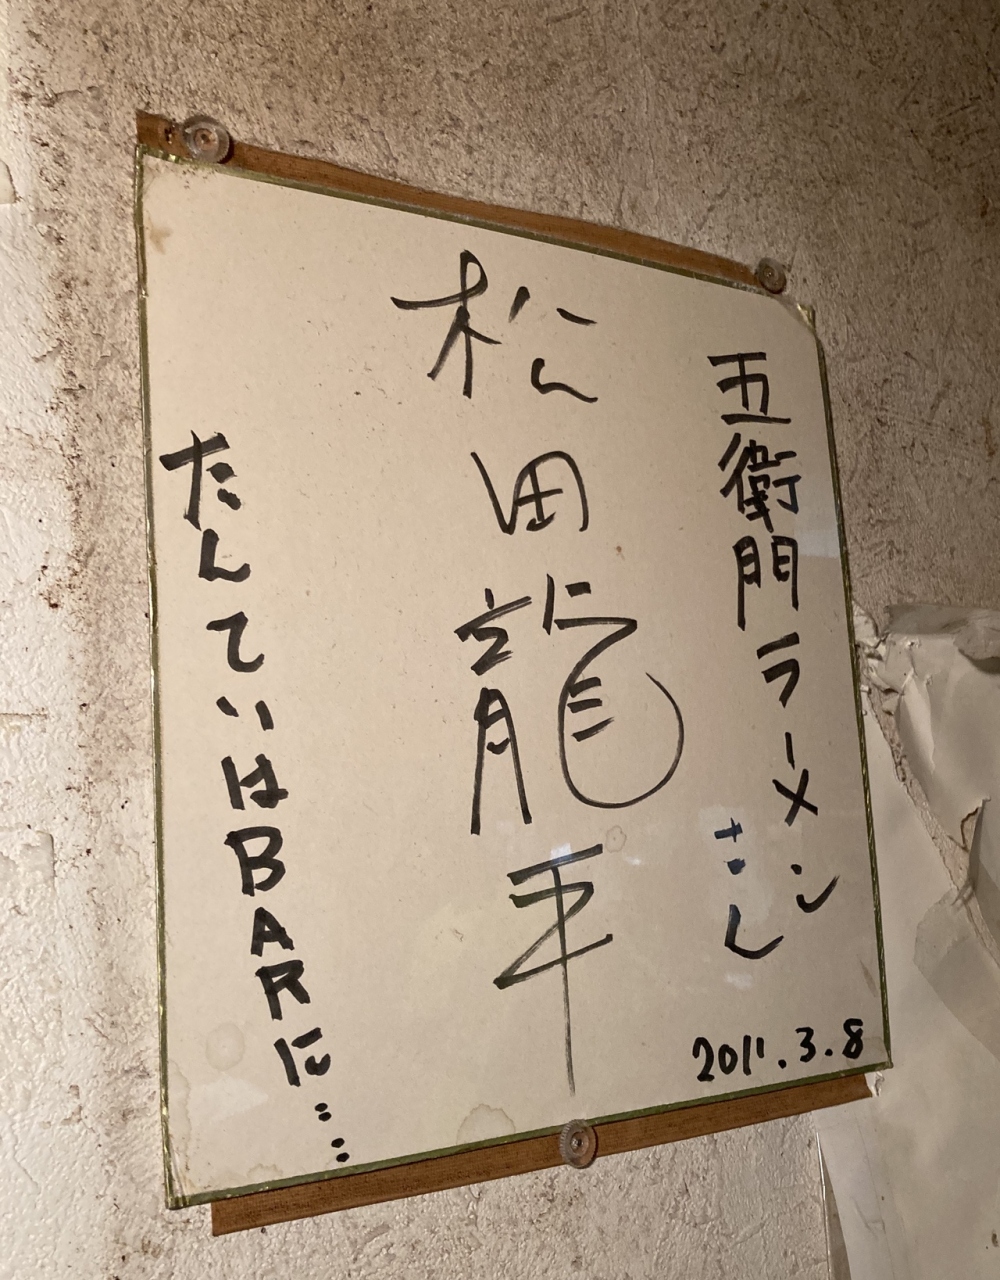 五衛門ラーメン
さん
2011.3.8
松田龍平
たんていはBARに……